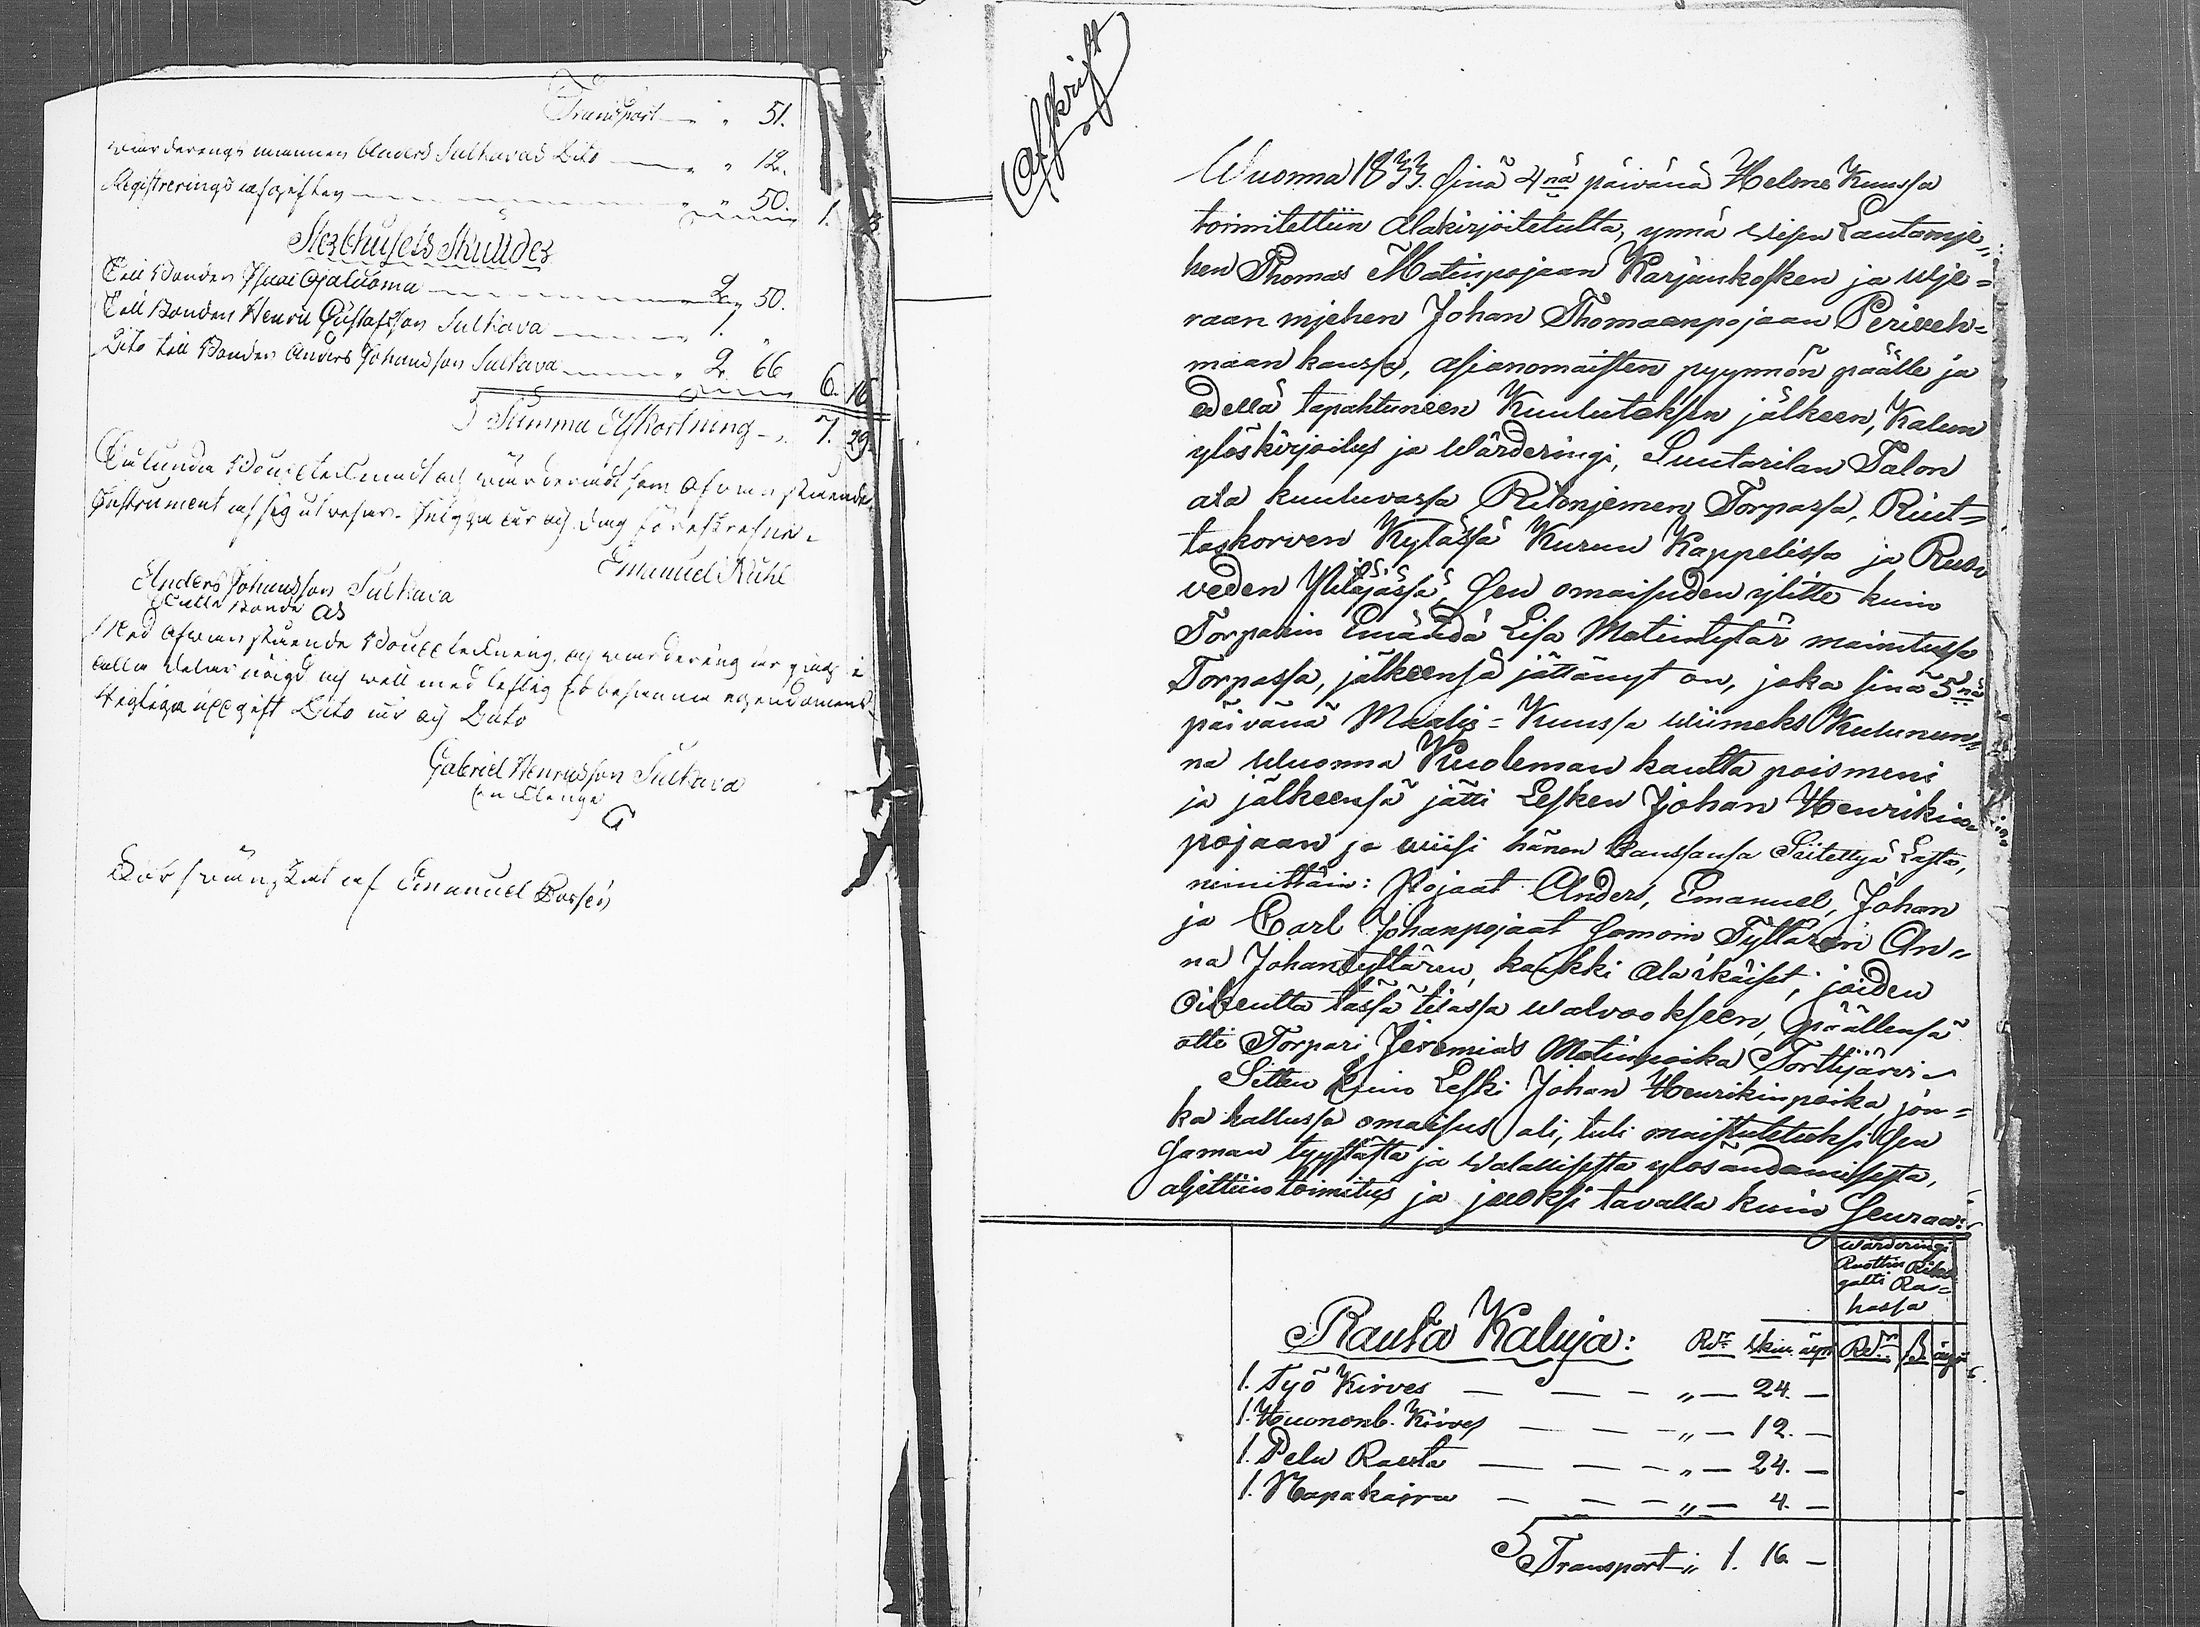 Transport — " 51.
värderings mannen Anders Sulkavas Dito — " 12.
Registrerings afgiften — " 50. 1. 13.
Sterbhusets Skulder
Till Bonden Isaac Ojaluoma — 2. 50.
Till Bonden Henric Gustafsson Sulkava — 1. "
Dito till Bonden Anders Johansson Sulkava — 2. 66 6. 16
Summa Afkortning — 7. 29.
Sålunda Bouptecknadt och värderadt som ofvanstående
Instrument
Emanuel Kuhl
Anders Johansson Sulkava
Bonde AS
Med ofvanstående Bouppteckning och värdering är jag i
alla delar nöjd och
uppgift Dito år och Dato
Gabriel Henricsson Sulkava
G
af Emanuel
Afskrift
Wuonna 1833. sinä 4nä päivänä Helme Kuussa
toimitettiin Alakirjoitetulta, ynnä wissn Lautamje„
hen Thomas Matinpojaan Karjankosken ja wje=
raan mjehen Johan Thomaanpojaan Perweh=
maan kanssa, Asianomaisten pyynnön päälle ja
edellä tapahtuneen Kuulutuksen jälkeen, Kalun
ylöskirjoitus ja Wärderingi, Suutarilan Talon
ala kuuluvassa Ritonjemen Torpassa, Riut=
taskorven Kylässä Kurun Kappelissa ja Ruo
veden Pitäjässä, sen omaisuden ylitte kuin
Torparin Emändä Lisa Matintytär mainitussa
Torpassa, jälkeensä jättänyt on, joka sinä 5nä
päivänä Maalis=Kuussa wiimeks Kulunun„
na Wuonna Kuoleman kautta poismeni
ja jälkeensä jätti Lesken Johan Henrikin„
pojaan ja wiisi hänen kanssansa Siitettyä Lasta,
nimittäin: Pojaat Anders, Emanuel, Johan
ja Carl Johanpojaat samoin Tyttären An„
na Johantyttären, kaikki Alaikäiset, joiden
Oikeutta tässä tilassa walvookseen, päällensä
otti Torpari Jeremias Matinpoika Torttijärvi
Sitten kuin Leski Johan Henrikinpoika, jon=
ka hallussa omaisus oli, tuli muistutetuksi sen
saman tyystästä ja walallisesta ylösandamisesta,
aljettiin toimitus ja juoksi tavalla kuin seuraa:
Wärderingi
Ruottin Riksi
galti Ra=
hassa
Rauta Kaluja: Rdr Skin äyri Rdr ß äyri
1. Työ Kirves — — — „ — 24. —
1. Huonomb. Kirves — — — „ — 12. —
1. Pelu Rauta — — — „ — 24. —
1. Napakaira — — — „ — 4. —
Transport „ 1. 16 —